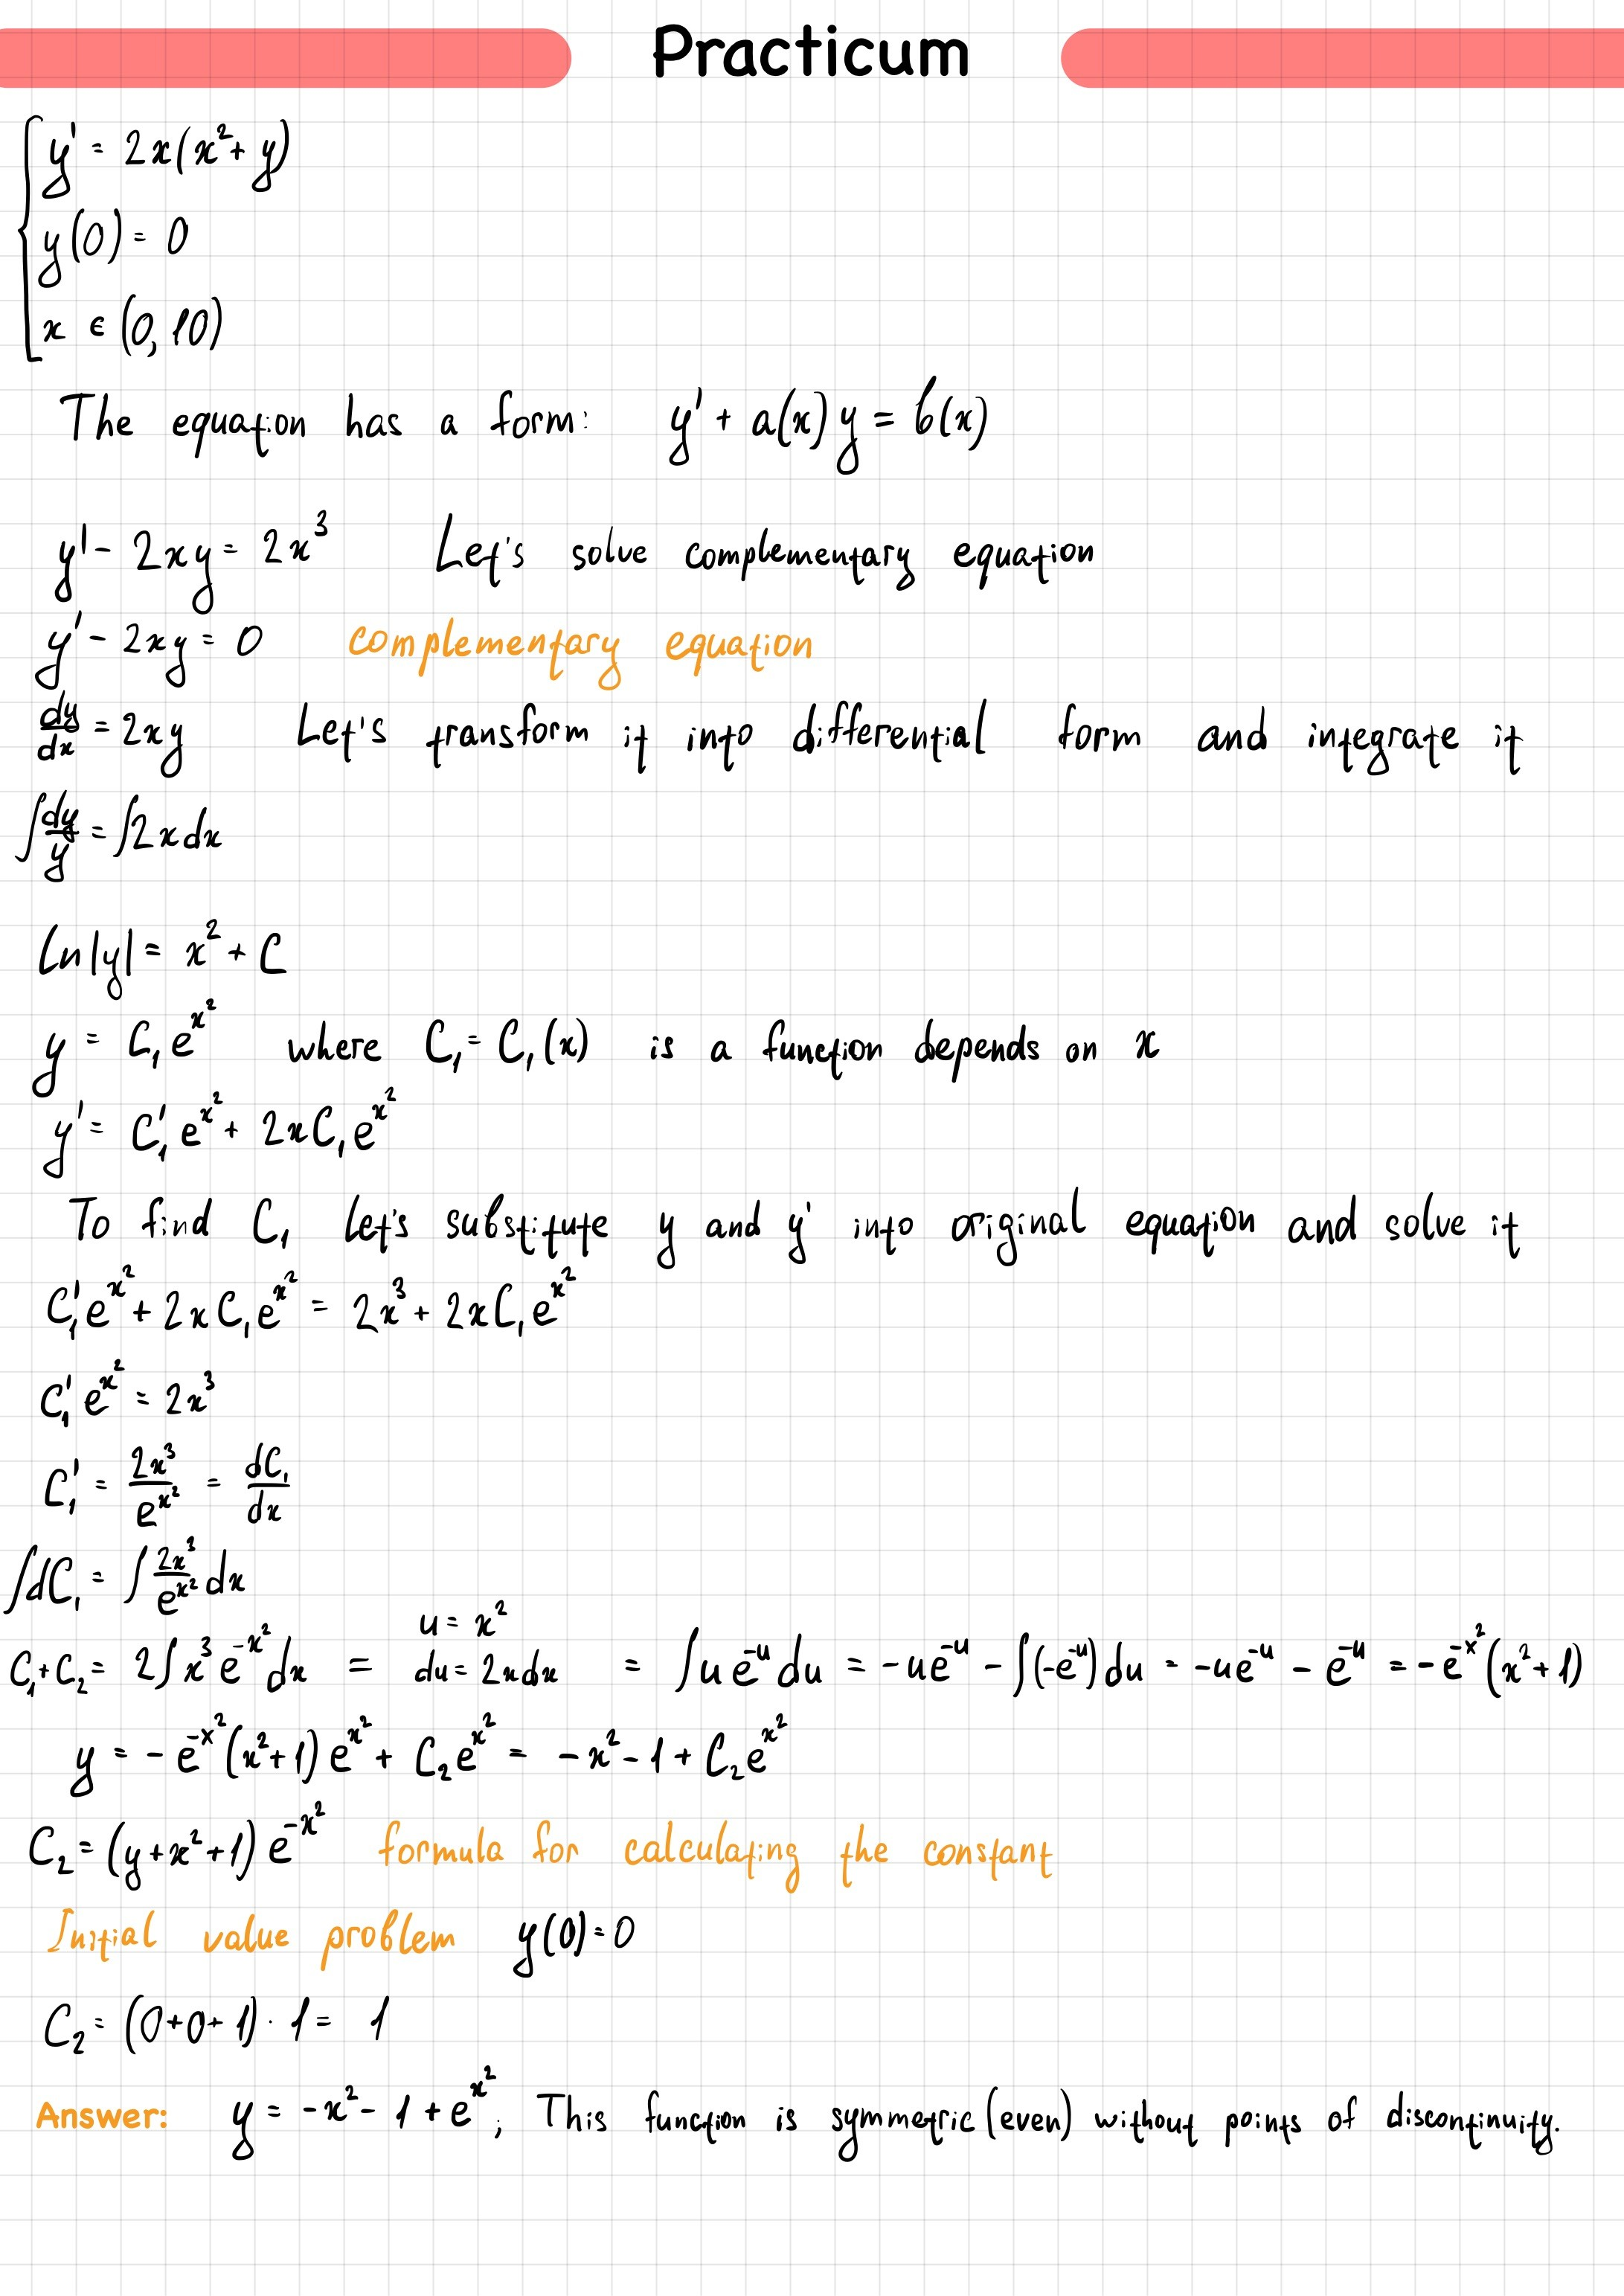 Practicum
y' = 2x(x² + y)
y(0) = 0
x ∈ (0, 10)
The equation has a form: y' + a(x)y = b(x)
y' - 2xy = 2x³ Let's solve complementary equation
y' - 2xy = 0 complementary equation
dy/dx = 2xy Let's transform it into differential form and integrate it
∫dy/y = ∫2xdx
ln|y| = x² + C
y = C₁e^x² where C₁ = C₁(x) is a function depends on x
y' = C₁'e^x² + 2xC₁e^x²
To find C₁ let's substitute y and y' into original equation and solve it
C₁'e^x² + 2xC₁e^x² = 2x³ + 2xC₁e^x²
C₁'e^x² = 2x³
C₁' = 2x³/e^x² = dC₁/dx
∫dC₁ = ∫2x³/e^x² dx
u = x²
C₁+C₂ = 2∫x³e^-x² dx = du = 2xdx = ∫ue^-u du = -ue^-u - ∫(-e^-u)du = -ue^-u - e^-u = -e^-x²(x²+1)
y = -e^-x²(x²+1)e^x² + C₂e^x² = -x² - 1 + C₂e^x²
C₂ = (y+x²+1)e^-x² formula for calculating the constant
Initial value problem y(0) = 0
C₂ = (0+0+1)·1 = 1
Answer: y = -x² - 1 + e^x²; This function is symmetric (even) without points of discontinuity.